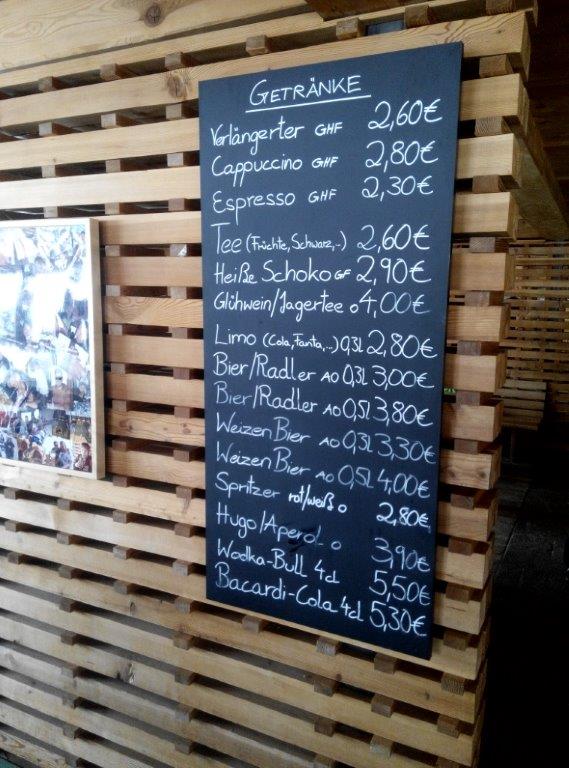 GETRÄNKE
Verlängerter GHF 2,60€
Cappuccino GHF 2,80€
Espresso GHF 2,30€
Tee (Früchte, Schwarz,..) 2,60€
Heiße Schoko GF 2,90€
Glühwein/Jagertee o 4,00€
Limo (Cola, Fanta,...) 0,3l 2,80€
Bier/Radler AO 0,3l 3,00€
Bier/Radler AO 0,5l 3,80€
Weizen Bier AO 0,3l 3,30€
Weizen Bier AO 0,5l 4,00€
Spritzer rot/weiß o 2,80€
Hugo/Aperol o 3,90€
Wodka-Bull 4cl 5,50€
Bacardi-Cola 4cl 5,30€